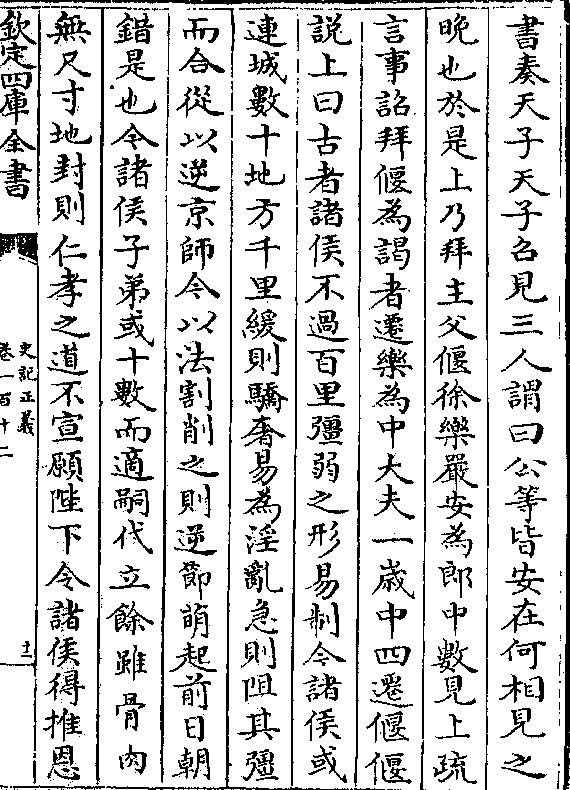 書奏天子天子召見三人謂曰公等皆安在何相見之
晚也於是上乃拜主父偃徐樂嚴安為郎中數見上疏
言事詔拜偃為謁者遷樂為中大夫一歳中四遷偃偃
說上曰古者諸侯不過百里彊弱之形易制今諸侯或
連城數十地方千里緩則驕奢易為淫亂急則阻其彊
而合從以逆京師今以法割削之則逆節萌起前日朝
錯是也今諸侯子弟或十數而適嗣代立餘雖骨肉
無尺寸地封則仁孝之道不宣願陛下令諸侯得推恩
欽定四庫全書
史記正義
卷一百十二
十一